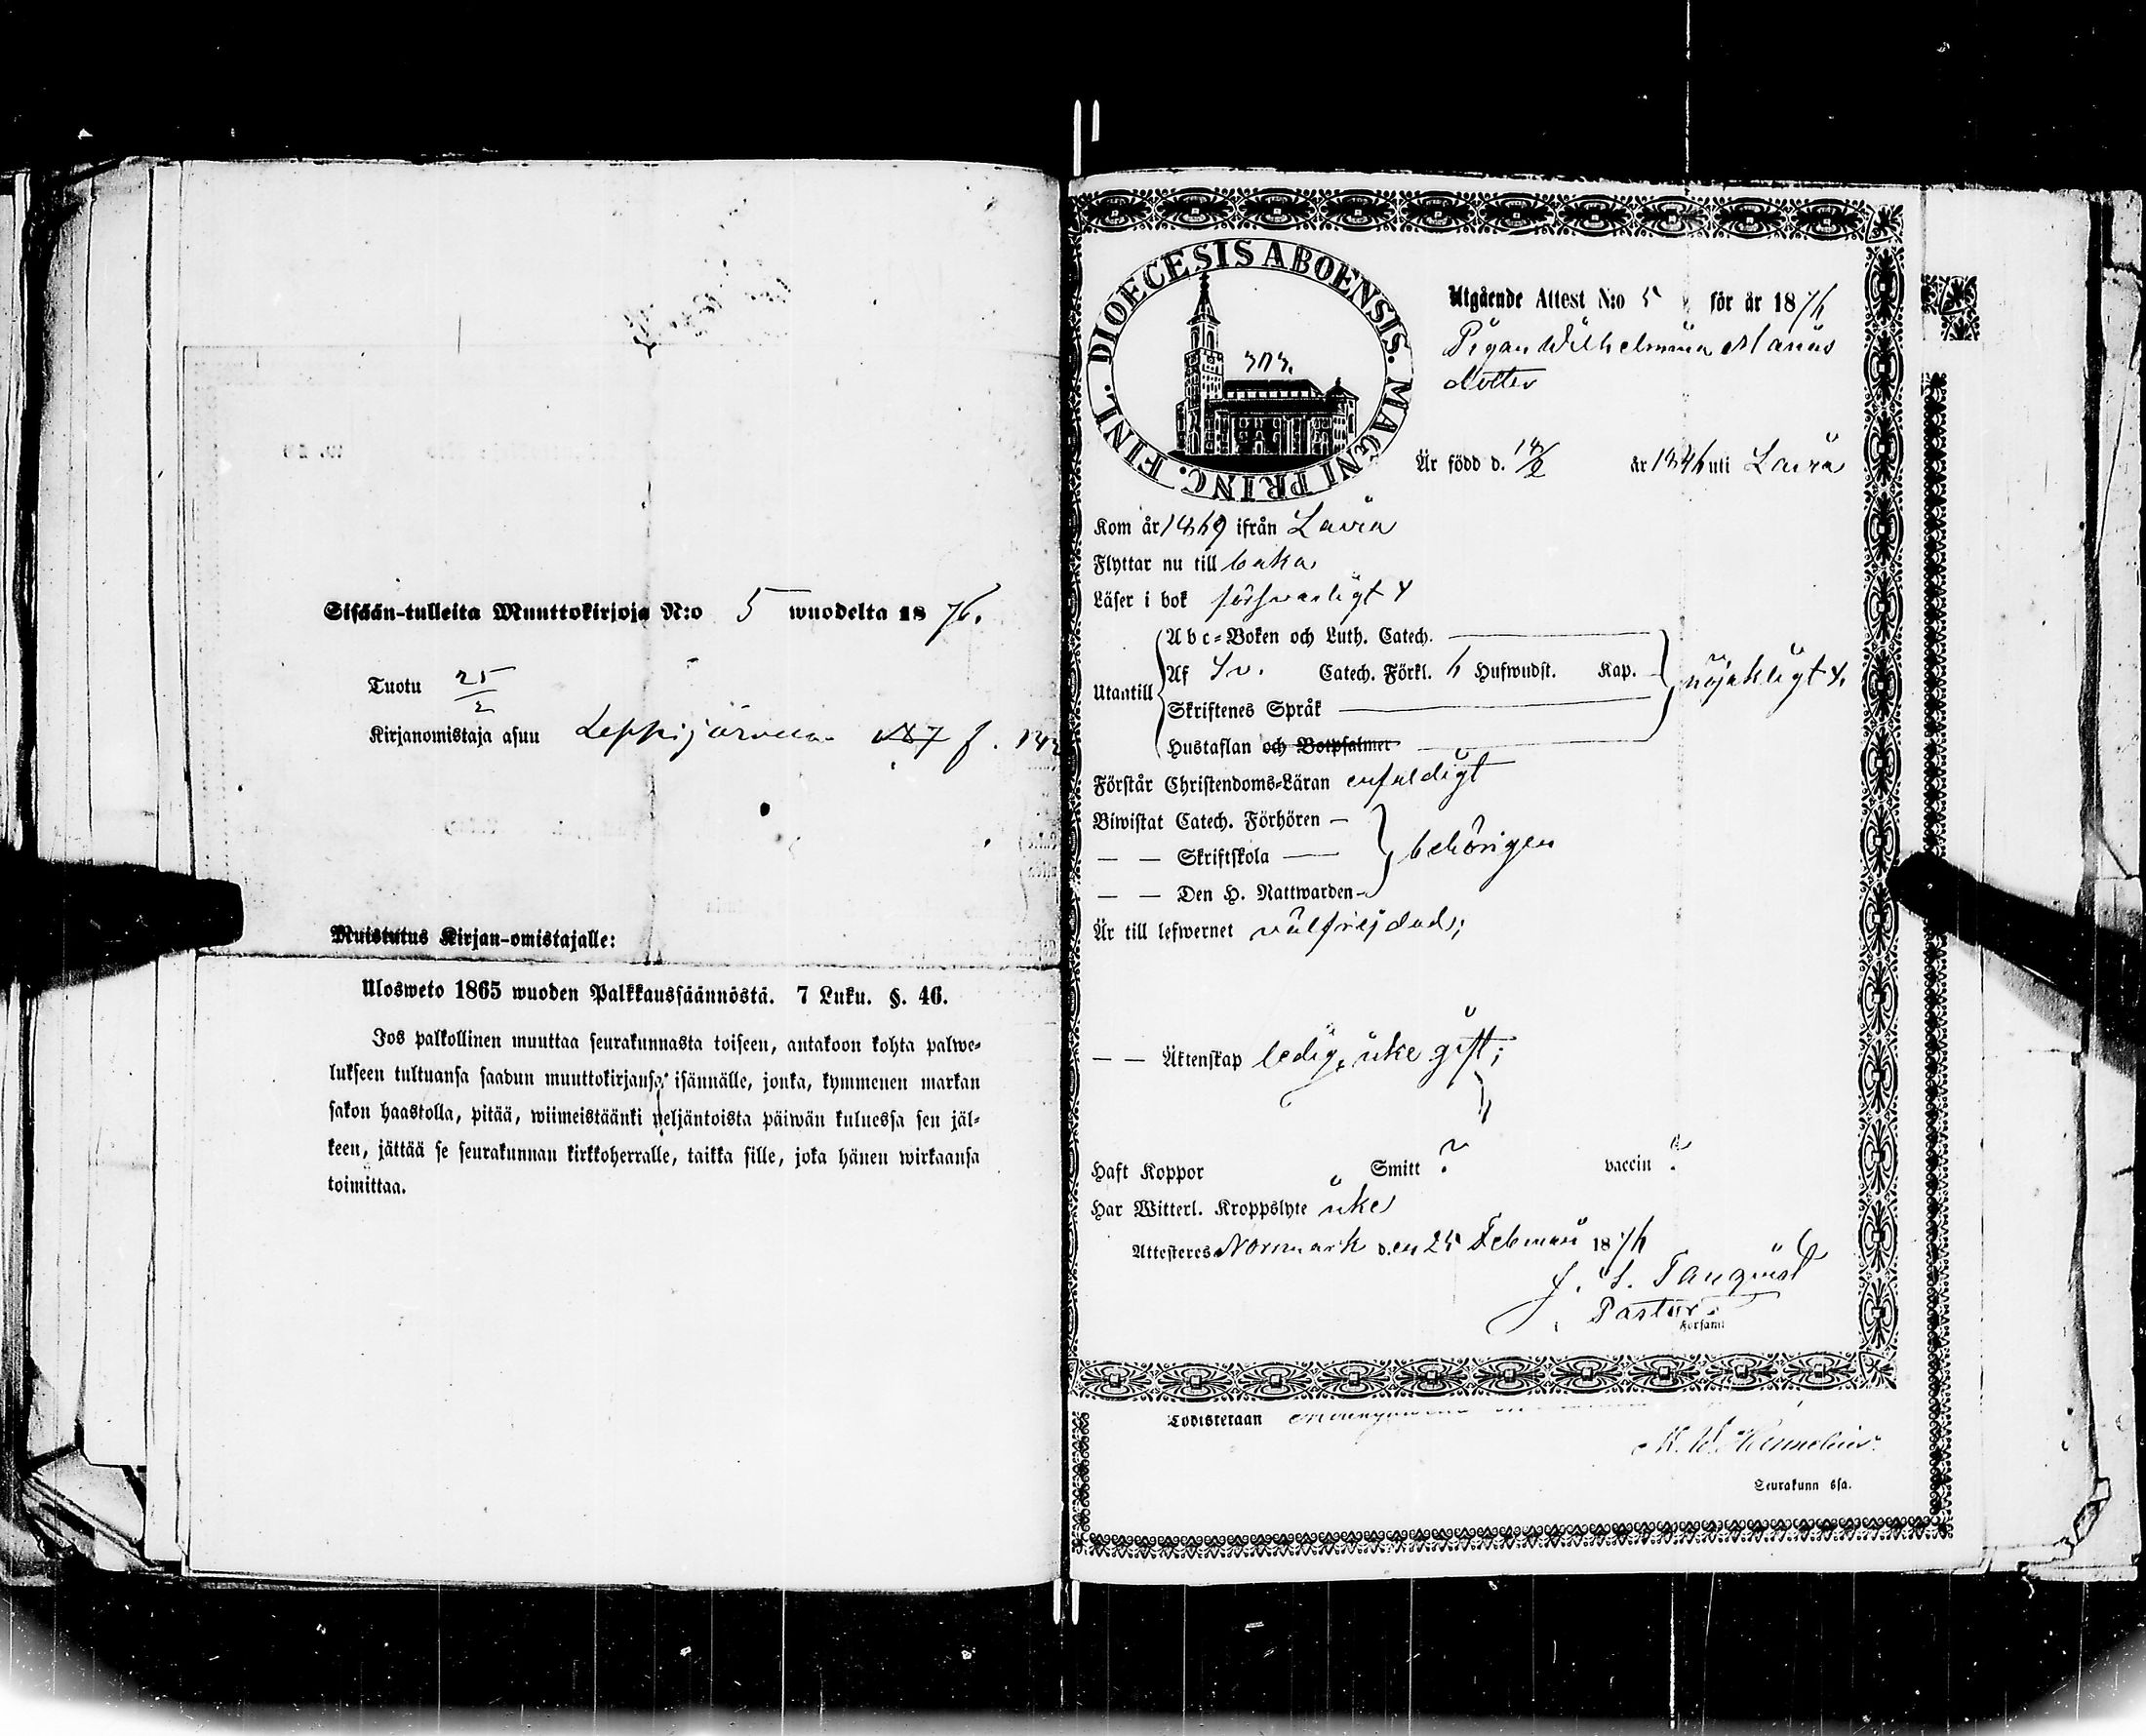 Sisään-tulleita Muuttokirjoja N:o 5 wuodelta 1876.
Tuotu 25/2
Kirjanomistaja asuu Leppijärven 187 f. 142
Muistutus Kirjan-omistajalle:
Ulosweto 1865 wuoden Palkkaussäännöstä. 7 Luku. §. 46.
Jos palkollinen muuttaa seurakunnasta toiseen, antakoon kohta palwe-
lukseen tultuansa saadun muuttokirjansa isännälle, jonka, kymmenen markan
sakon haastolla, pitää, wiimeistäänki neljäntoista päiwän kuluessa sen jäl-
keen, jättää se seurakunnan kirkkoherralle, taikka sille, joka hänen wirkaansa
toimittaa.
DIOECESIS ABOENSIS. MAGNI PRINC. FINL.
Utgående Attest N:o 5 för år 1876
Pigan Wilhelmina Mariæ
dotter
Är född d. /2 år 1846 uti Lavia
Kom år 1869 ifrån Lavia
Flyttar nu till baka
Läser i bok försvarligt
Utantill
Abc-Boken och Luth. Catech.
Af Sv. Catech. Förkl. 6 Hufwudst. Kap.
nöjaktigt
Skriftenes Språk
Hustaflan och Botpsalmer
Förstår Christendoms-Läran enfaldigt
Biwistat Catech. Förhören
— — Skriftskola
behörigen
— — Den H. Nattwarden
Är till lefwernet välfrejdad;
— — Äktenskap ledig, icke gift;
Haft Koppor Smitt ? vaccin ?
Har Witterl. Kroppslyte icke
Attesteres Norrmark den 25 Februari 1876
Pastor
Församl
Todistetaan
Seurakunn ssa.